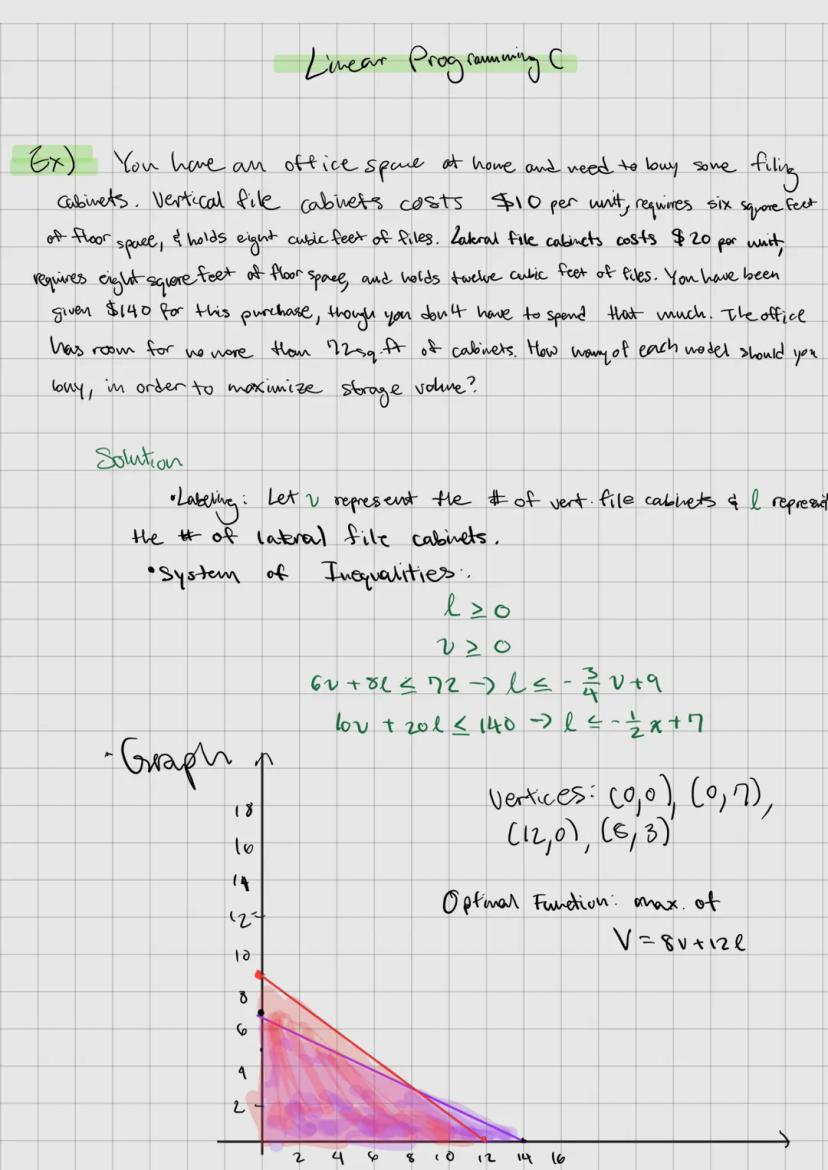 Linear Programming C
Ex) You have an office space at home and need to buy some filing
cabinets. Vertical file cabinets costs $10 per unit, requires six square feet
of floor space, & holds eight cubic feet of files. Lateral file cabinets costs $20 per unit,
requires eight square feet of floor space, and holds twelve cubic feet of files. You have been
given $140 for this purchase, though you don't have to spend that much. The office
has room for no more than 72 sq. ft of cabinets. How many of each model should you
buy, in order to maximize storage volume?
Solution
• Labeling: Let v represent the # of vert. file cabinets & l represent
the # of lateral file cabinets.
• System of Inequalities:
l ≥ 0
v ≥ 0
6v + 8l ≤ 72 → l ≤ - 3/4 v + 9
10v + 20l ≤ 140 → l ≤ - 1/2 x + 7
- Graph
Vertices: (0,0), (0,7),
(12,0), (8,3)
Optimal Function: max. of
V = 8v + 12l
18
16
14
12
10
8
6
4
2
2 4 6 8 10 12 14 16